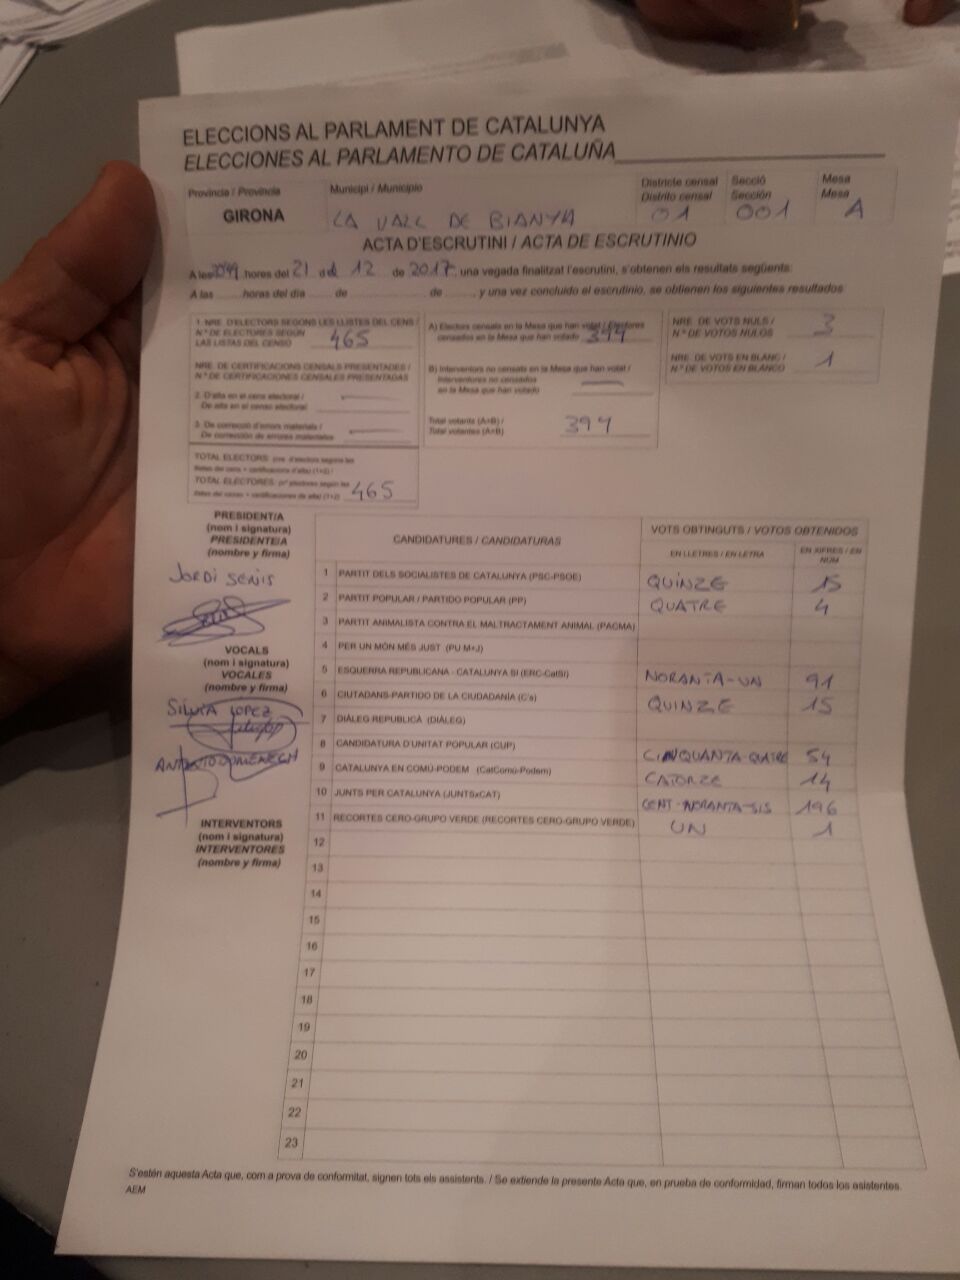 ELECCIONS AL PARLAMENT DE CATALUNYA
ELECCIONES AL PARLAMENTO DE CATALUÑA
Província / Provincia
GIRONA
Municipi / Municipio
LA VALL DE BIANYA
Districte censal
Distrito censal
01
Secció
Sección
001
Mesa
Mesa
A
ACTA D'ESCRUTINI / ACTA DE ESCRUTINIO
A les hores del 21 de 12 de 2017, una vegada finalitzat l'escrutini, s'obtenen els resultats següents:
A las hores del día de de , y una vez concluido el escrutinio, se obtienen los siguientes resultados
1. NRE. D'ELECTORS SEGONS LES LLISTES DEL CENS /
N.º DE ELECTORES SEGÚN
LAS LISTAS DEL CENSO
465
NRE. DE CERTIFICACIONS CENSALS PRESENTADES /
N.º DE CERTIFICACIONES CENSALES PRESENTADAS
2. D'alta en el cens electoral /
De alta en el censo electoral
3. De correcció d'errors materials /
De corrección de errores materiales
TOTAL ELECTORS: (nre. d'electors segons les
llistes del cens + certificacions d'alta) (1+2) /
TOTAL ELECTORES: (nº electores según las
listas del censo + certificaciones de alta) (1+2)
465
A) Electors censats en la Mesa que han votat / Electores
censados en la Mesa que han votado
394
B) Interventors no censats en la Mesa que han votat /
Interventores no censados
en la Mesa que han votado
Total votants (A+B) /
Total votantes (A+B)
394
NRE. DE VOTS NULS /
N.º DE VOTOS NULOS
3
NRE. DE VOTS EN BLANC /
N.º DE VOTOS EN BLANCO
1
PRESIDENT/A
(nom i signatura)
PRESIDENTE/A
(nombre y firma)
JORDI SENIS
VOCALS
(nom i signatura)
VOCALES
(nombre y firma)
SILVIA LOPEZ
INTERVENTORS
(nom i signatura)
INTERVENTORES
(nombre y firma)
CANDIDATURES / CANDIDATURAS
VOTS OBTINGUTS / VOTOS OBTENIDOS
EN LLETRES / EN LETRA
EN XIFRES / EN NÚM
1 PARTIT DELS SOCIALISTES DE CATALUNYA (PSC-PSOE) QUINZE 15
2 PARTIT POPULAR / PARTIDO POPULAR (PP) QUATRE 4
3 PARTIT ANIMALISTA CONTRA EL MALTRACTAMENT ANIMAL (PACMA)
4 PER UN MÓN MÉS JUST (PU M+J)
5 ESQUERRA REPUBLICANA - CATALUNYA SÍ (ERC-CatSí) NORANTA-UN 91
6 CIUTADANS-PARTIDO DE LA CIUDADANÍA (C's) QUINZE 15
7 DIÀLEG REPUBLICÀ (DIÀLEG)
8 CANDIDATURA D'UNITAT POPULAR (CUP) CINQUANTA-QUATRE 54
9 CATALUNYA EN COMÚ-PODEM (CatComú-Podem) CATORZE 14
10 JUNTS PER CATALUNYA (JUNTSxCAT) CENT-NORANTA-SIS 196
11 RECORTES CERO-GRUPO VERDE (RECORTES CERO-GRUPO VERDE) UN 1
12
13
14
15
16
17
18
19
20
21
22
23
S'estén aquesta Acta que, com a prova de conformitat, signen tots els assistents. / Se extiende la presente Acta que, en prueba de conformidad, firman todos los asistentes.
AEM